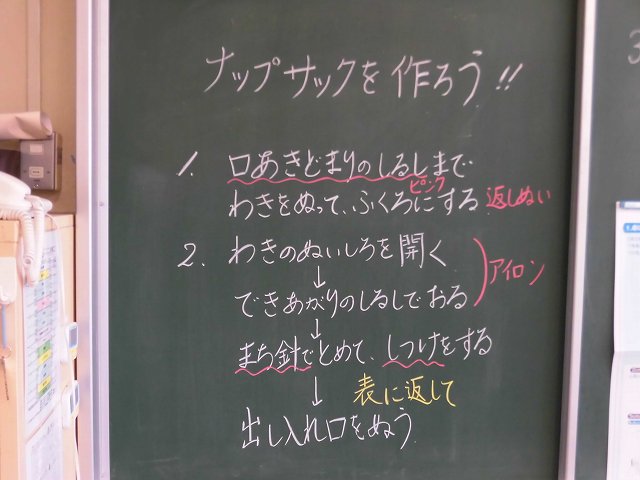 ナップサックを作ろう!!
1. 口あきどまりのしるしまで
ピンク
わきをぬって、ふくろにする 返しぬい
2. わきのぬいしろを開く
↓
アイロン
できあがりのしるしでおる
↓
まち針でとめて、しつけをする
↓ 表に返して
出し入れ口をぬう